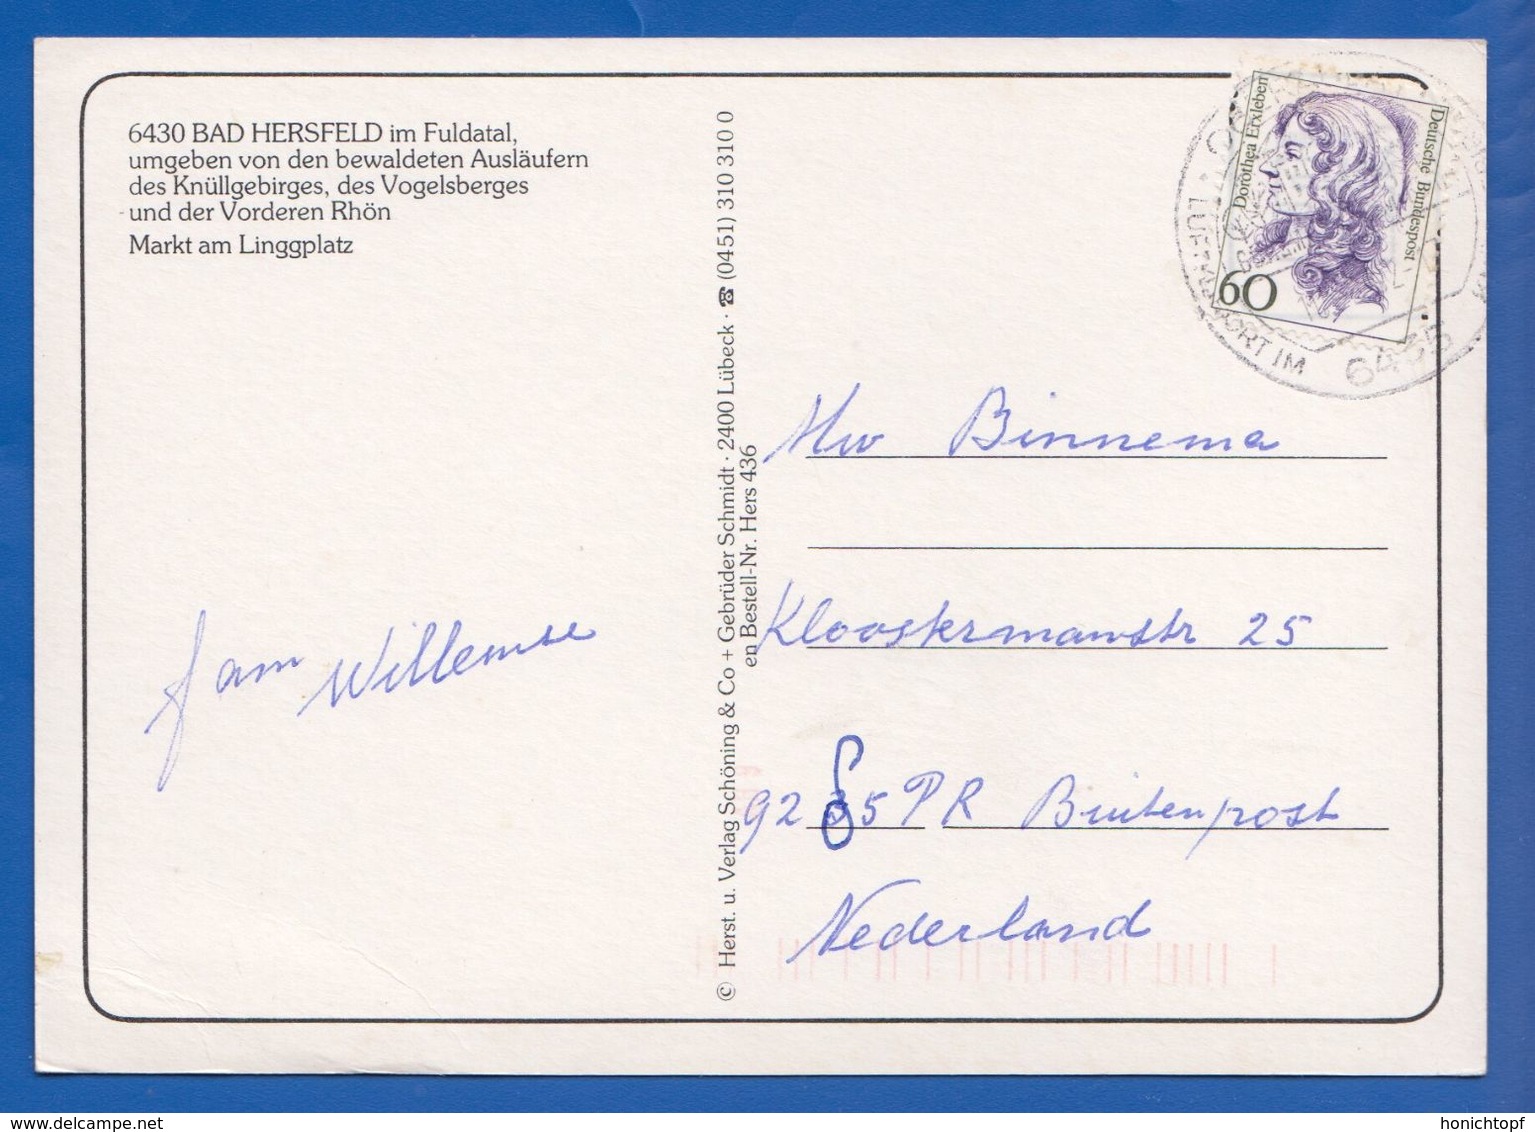 6430 BAD HERSFELD im Fuldatal,
umgeben von den bewaldeten Ausläufern
des Knüllgebirges, des Vogelsberges
und der Vorderen Rhön
Markt am Linggplatz
fam Willemse
© Herst. u. Verlag Schöning & Co + Gebrüder Schmidt · 2400 Lübeck · ☎ (0451) 310 310 0
en Bestell-Nr. Hers 436
Dorothea Erxleben
Deutsche Bundespost
60
LUFTKURORT IM
Mw Binnema
Kloostermanstr 25
9285 PR Buitenpost
Nederland
honichtopf